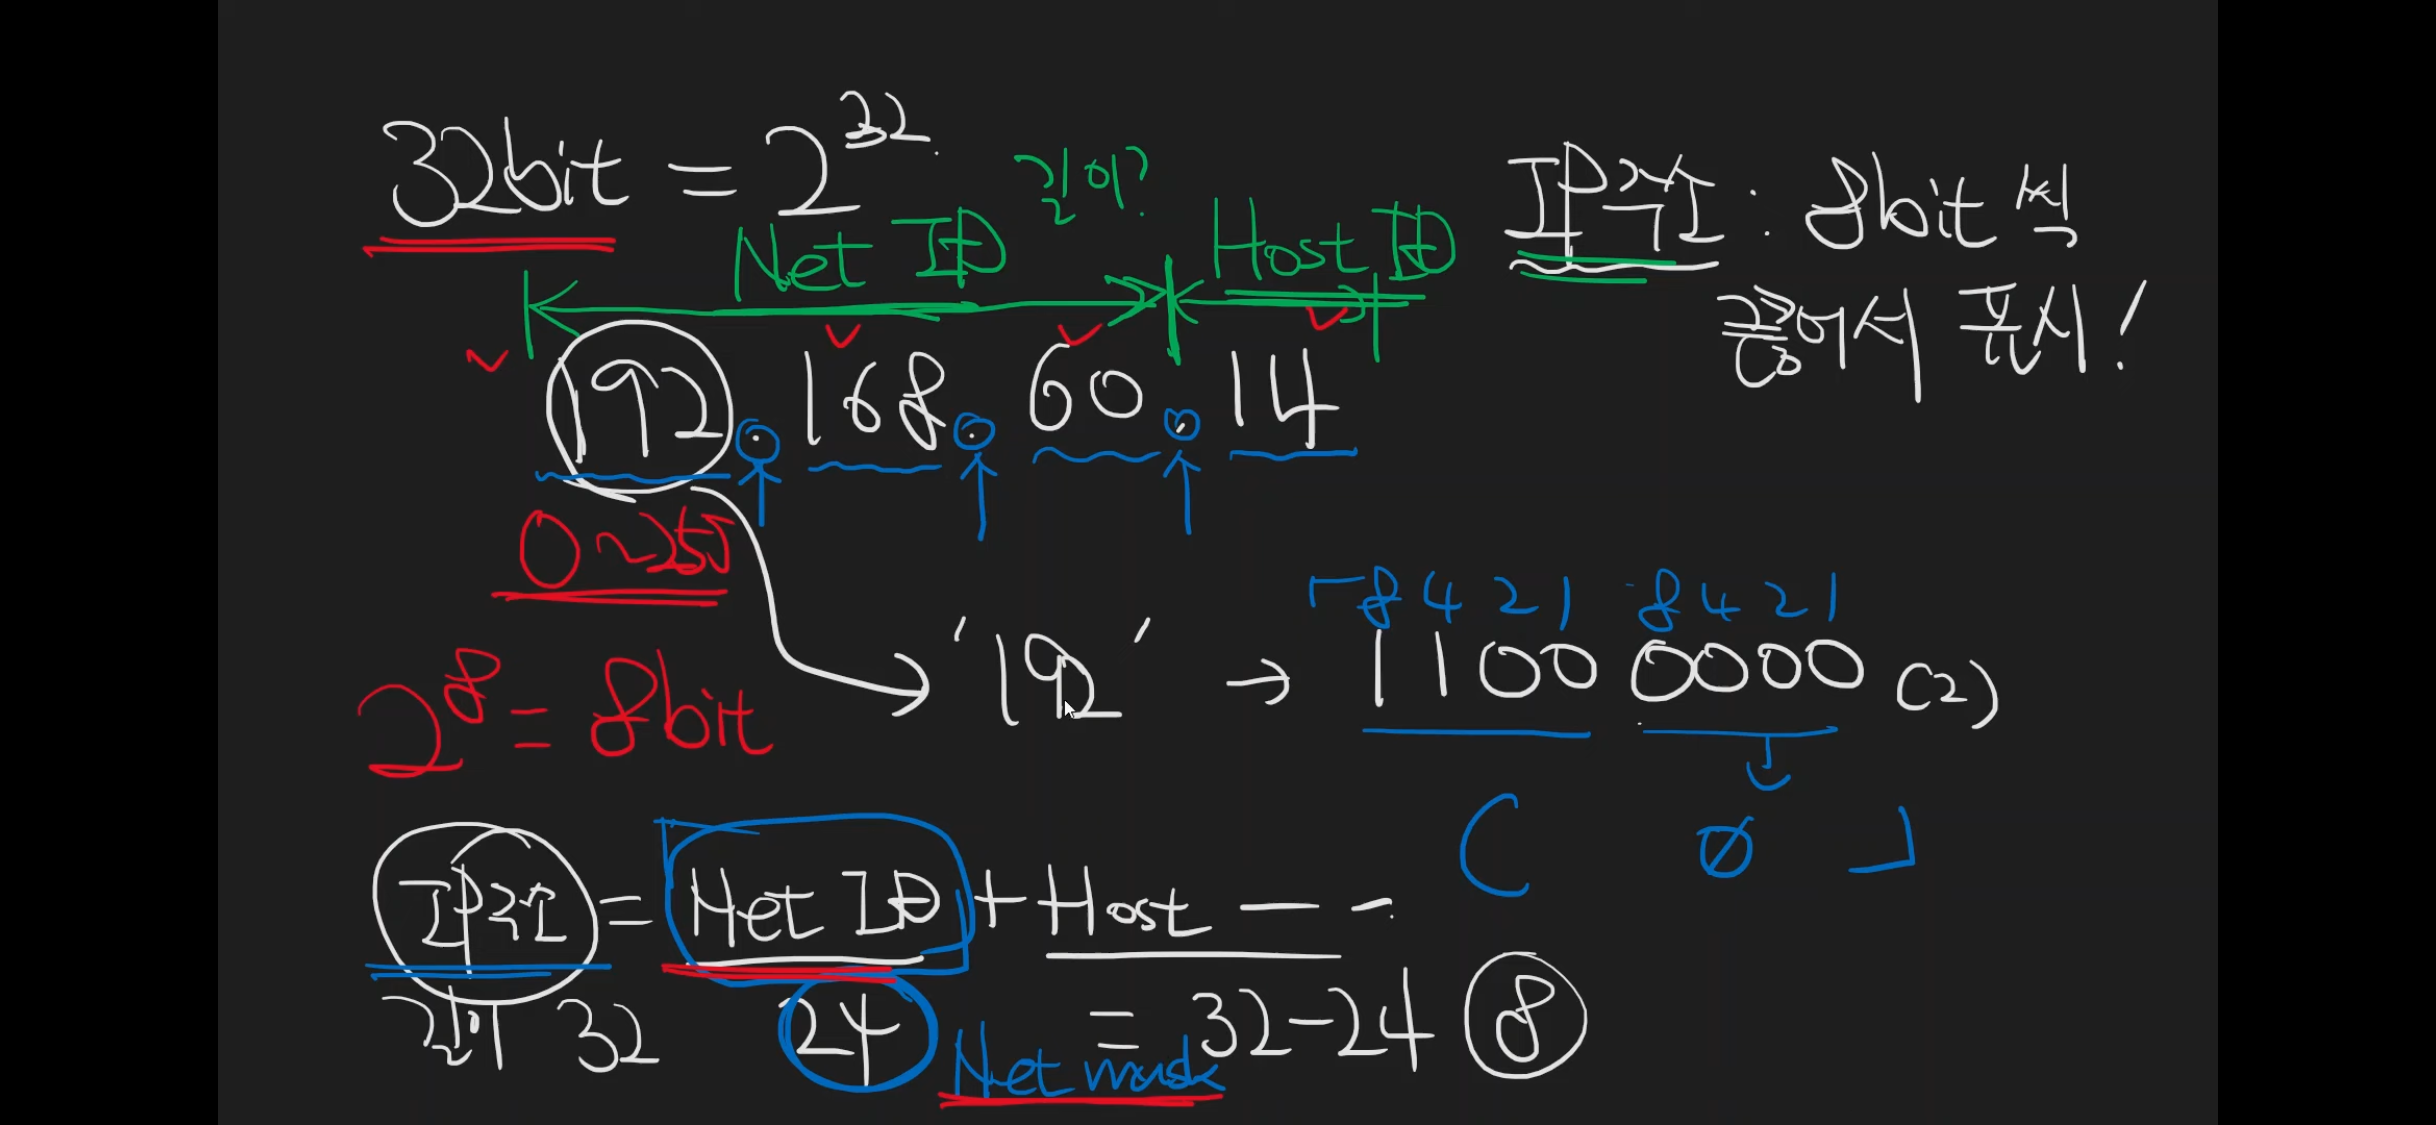 32bit = 2^32.
길이?
IP주소 : 8bit 씩
끊어서 표시!
Net ID Host ID
192 . 168 . 60 . 14
0~255
8 4 2 1 8 4 2 1
'192' → 1100 0000 (2)
2^8 = 8bit
C 0
IP주소 = Net ID + Host — -.
길이 32 24 = 32-24 8
Net mask